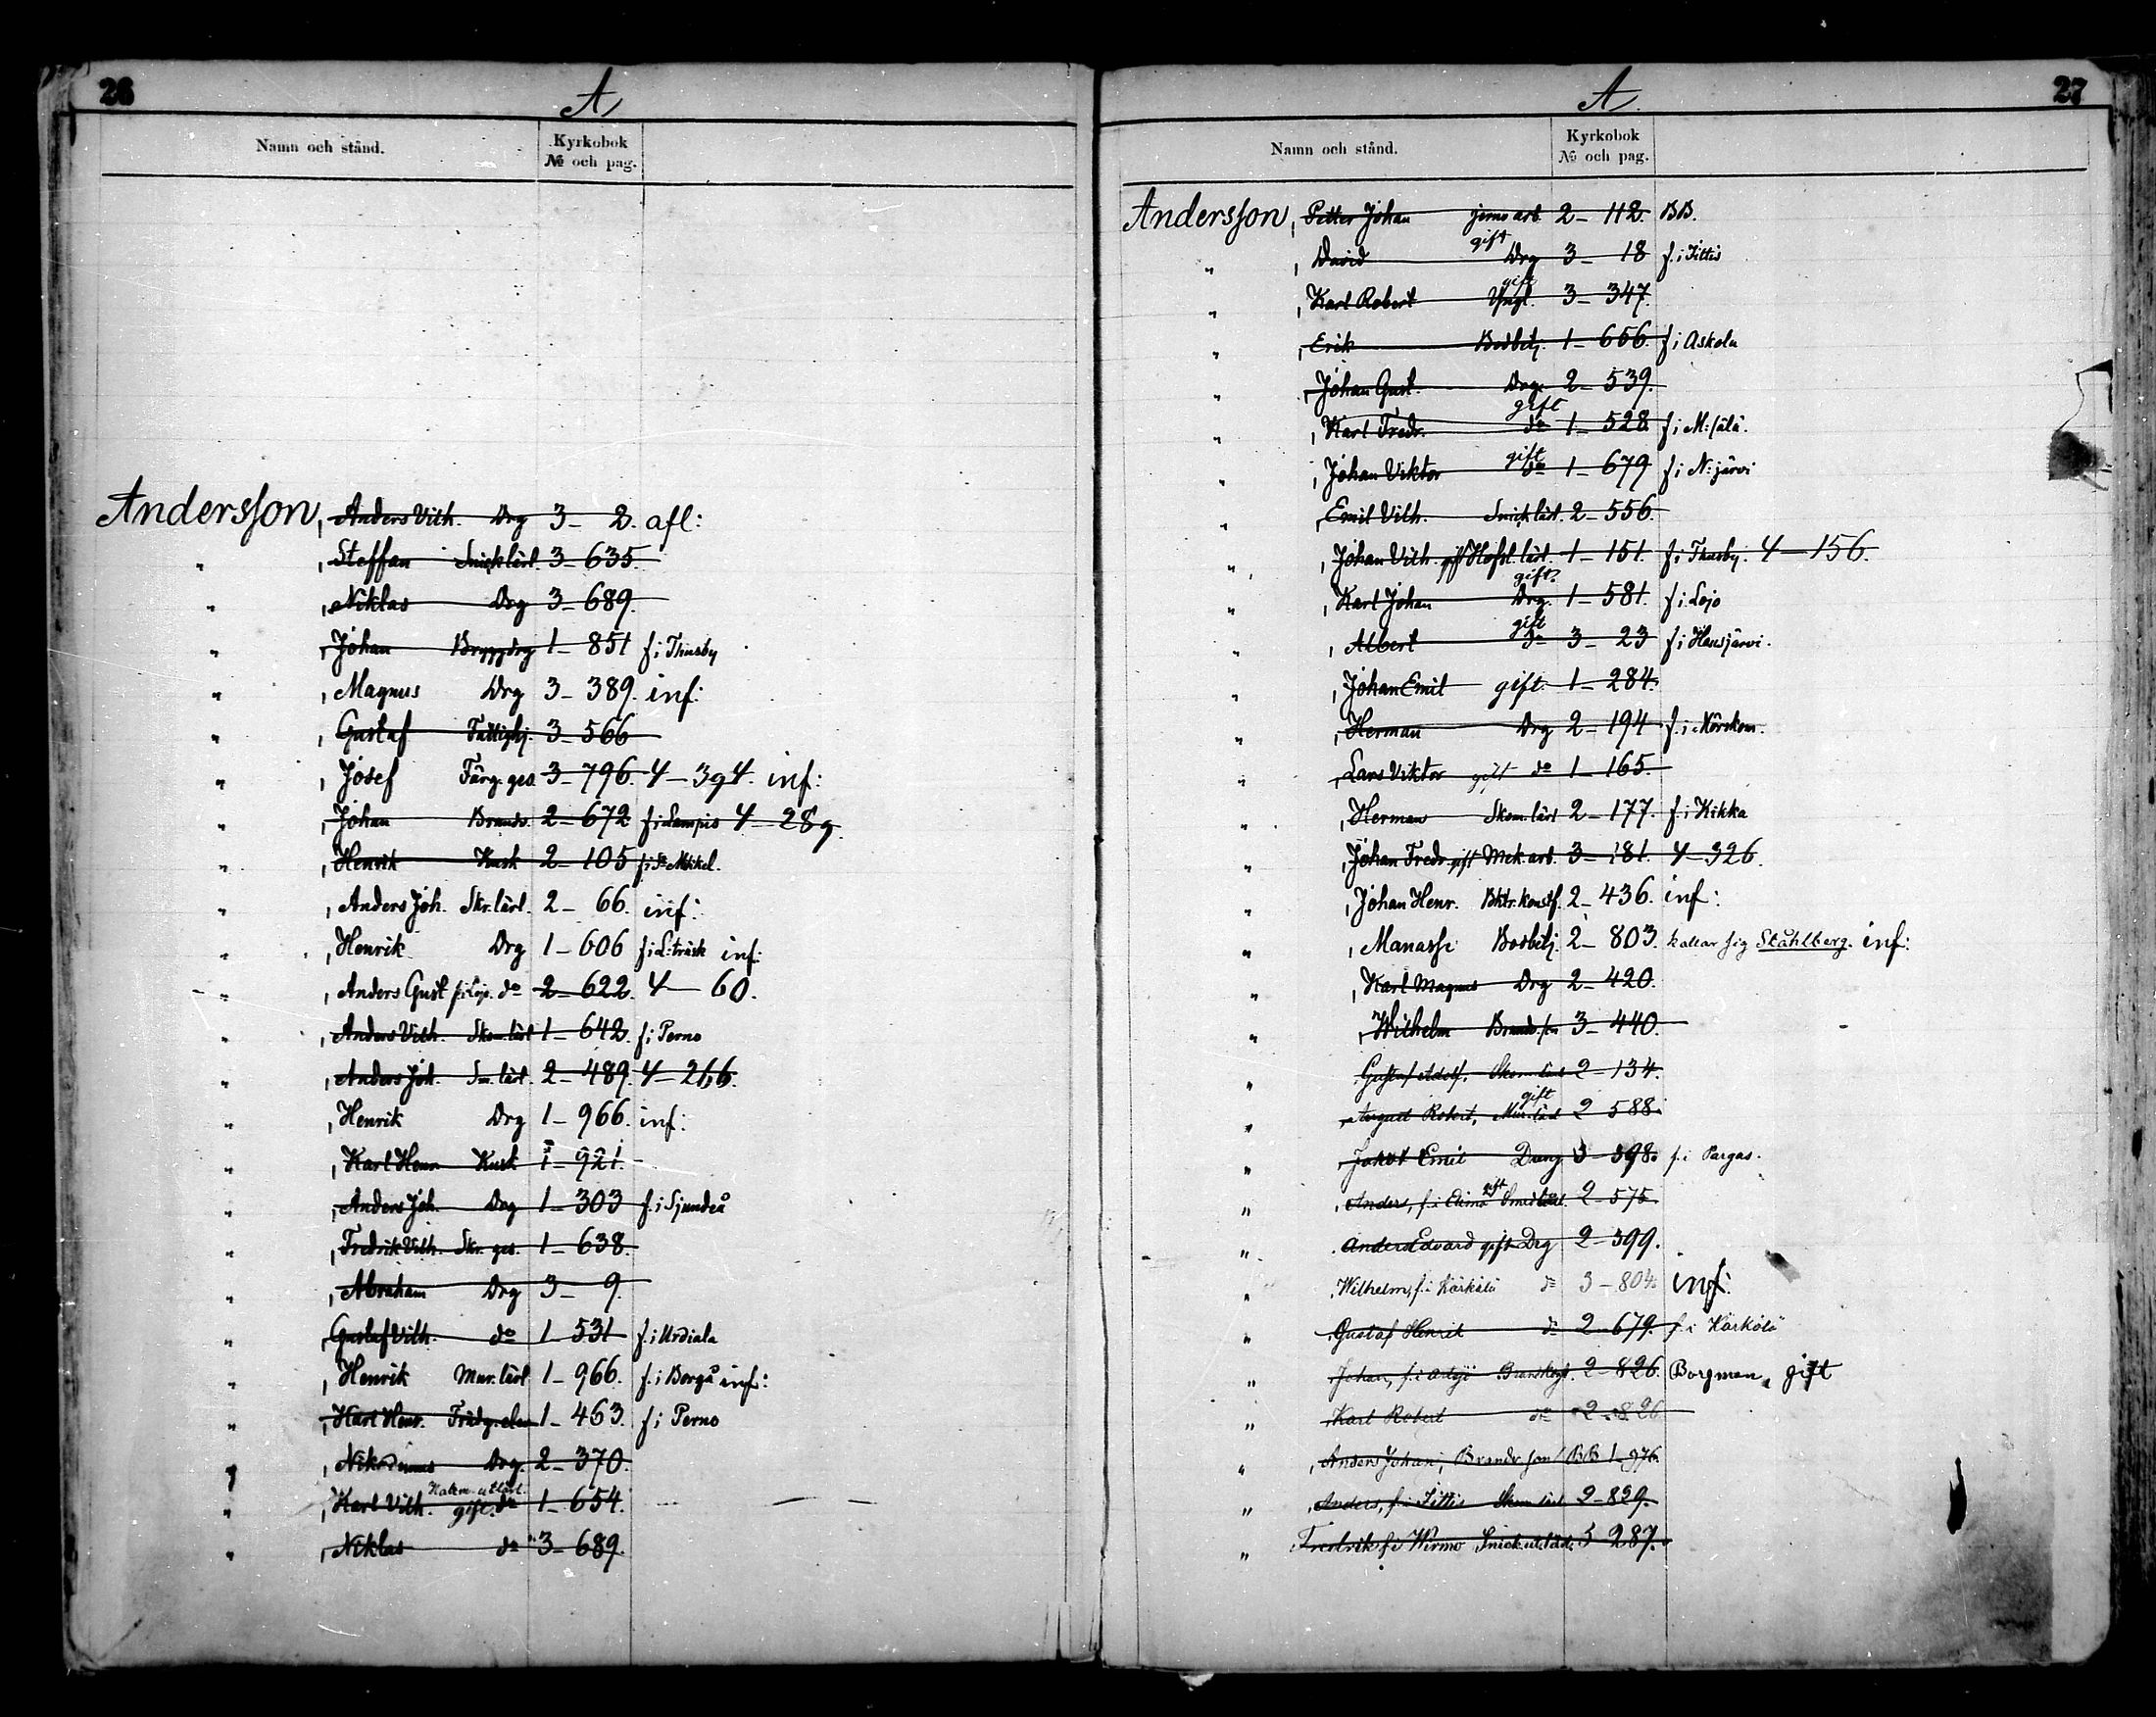 26
A
Namn och stånd.
Kyrkobok
№ och pag.
Andersson, Anders Vilh. Drg 3 – 2. afl:
" , Steffan Snick.lärl. 3 – 635.
" , Niklas Drg 3 – 689.
" , Johan Bryggdrg 1 – 851 f. i Thusby
" , Magnus Drg 3 – 389. inf:
" , Gustaf Fattighj. 3 – 566
" , Josef Färg. ges. 3 – 796. 4 – 394. inf:
" , Johan Brandv. 2 – 672 f. i Lampis 4 – 289.
" , Henrik Kusk 2 – 105 f. i St Mikel.
" , Anders Joh. Skr. lärl. 2 – 66. inf:
" , Henrik Drg 1 – 606 f. i L:träsk inf:
" , Anders Gust f. i Lojo. do 2 – 622. 4 – 60.
" , Anders Vilh. Skom. lärl 1 – 642. f. i Perno
" , Anders Joh. Sm. lärl. 2 – 489. 4 – 266.
" , Henrik Drg 1 – 966. inf:
" , Karl Henr. Kusk 1 – 921.
" , Anders Joh. Drg 1 – 303 f. i Sjundeå
" , Fredrik Vilh. Skr. ges. 1 – 638.
" , Abraham Drg 3 – 9.
" , Gustaf Vilh. do 1 – 531 f. i Urdiala
" , Henrik Mur. lärl. 1 – 966. f. i Borgå inf:
" , Karl Henr. Trädg. elev 1 – 463. f. i Perno
" , Nikodemus Drg. 2 – 370.
" , Karl Vilh. gift. do 1 – 654.
" , Niklas do 3 – 689.
27
A.
Namn och stånd.
Kyrkobok
№ och pag.
Andersson, Petter Johan jernv arb. 2 – 112. BB.
" , David gift Drg 3 – 18 f. i Jittis
" , Karl Robert gift Yngl. 3 – 347.
" , Erik Bodbetj. 1 – 656. f. i Askola
" , Johan Gust. Drg. 2 – 539.
" , Karl Fredr. gift do 1 – 528. f. i M:sälä.
" , Johan Viktor gift do 1 – 679 f. i N:järvi
" , Emil Vilh. Snick lärl. 2 – 556.
" , Johan Vilh. gift Hofsl. lärl. 1 – 151. f. i Thusby. 4 – 156.
" , Karl Johan gift. Drg. 1 – 581. f. i Lojo
" , Albert gift do 3 – 23 f. i Hausjärvi.
" , Johan Emil gift. 1 – 284.
" , Herman Drg 2 – 194 f. i Mörskom.
" , Lars Viktor gift do 1 – 165.
" , Herman Skom. lärl 2 – 177. f. i Kikka
" , Johan Fredr. gift Mek. arb. 3 – 181. 4 – 326.
" , Johan Henr. Bktr. konstf. 2 – 436. inf:
" , Manasse Bodbetj. 2 – 803. kallar sig Ståhlberg. inf:
" , Karl Magnus Drg 2 – 420.
" , Wilhelm Brandv. son 3 – 440.
" , Gustaf Adolf, Skom lärl 2 – 134.
" , August Robert, gift Mur. lärl 2 588.
" , Jakob Emil Dreng 3 – 398. f. i Pargas.
" , Anders, f. i Elimä gift Smed lärl. 2 – 575.
" , Anders Edvard gift Drg 2 – 399.
" , Wilhelm, f. i Kärkölä do 3 – 804. inf:
" , Gustaf Henrik do 2 – 679. f. i Kärkölä
" , Johan, f. i Brandkyst. 2 – 826. Borgman, gift
" , Karl Robert do 2 – 826
" , Anders Johan, Brandv. son BB 1 – 976.
" , Anders, f. i Jittis Skom lärl 2 – 829.
" Fredrik f. i Wirmo Snick. ut. lärd. 5 – 287.